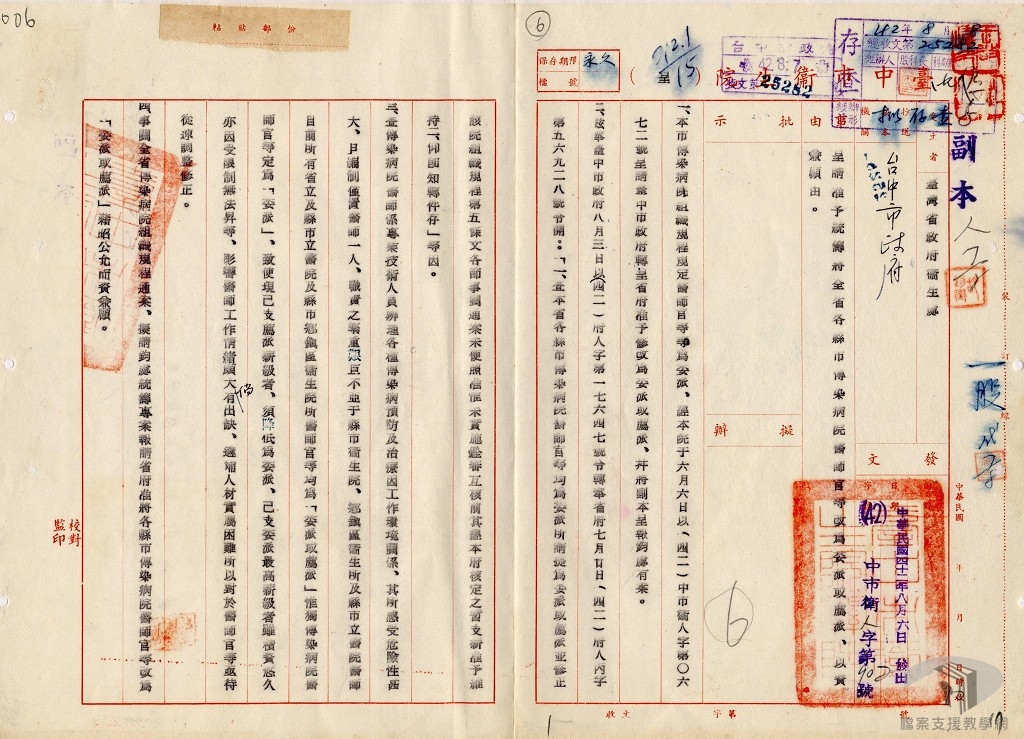 006
份部貼粘
⑥
保存期限 永久
檔號
212.1/15
台中市政府
42.8.7
收文第25282號
存查
42年8月8日
總收文第25282
臺中市衛生院(呈)
擬存查
副本
人二
受文者
臺灣省政府衛生處
抄送副本機關
台中市政府
事由
呈請准予統籌將全省各縣市傳染病院醫師官等改為委派或薦派、以資兼顧由。
批示
擬辦
發文
中華民國四十二年八月六日發出
(42)中市衛人字第902號
一、本市傳染病院組織規程規定醫師官等等為委派、經本院于六月六日以(四二)中市衛人字第〇六
七二號呈請臺中市政府轉呈省府准予修改為委派或薦派、并將副本呈報鈞處有案。
二、茲奉臺中市政府八月三日以(四二)府人字第一七六四七號令轉奉省府七月廿日(四二)府人丙字
第五六九二八號令開:「一、查本省各縣市傳染病院醫師官等均為委派所請提為委派或薦派並修正
該院組織規程第五條文各節事關通案未便照准惟未實施銓審互核前其經本府核定之者支薪准予維
持二、仰卽知轉件存」等因。
三、查傳染病院醫師係專業技術人員辨理各種傳染病預防及治療因工作環境關係、其所感受危險性甚
大、且編制僅實醫師一人、職責之繁重艱巨不亞于縣市衛生院、鄉鎮區衛生所及縣市立醫院醫師
目前所有省立及縣市立醫院及縣市鄉鎮區衛生院所醫師官等均為「委派或薦派」惟獨傳染病院醫
師官等定為「委派」、致使現已支薦派薪級者、須降低為委派、已支委派最高薪級者雖積資悠久
亦因受限制無法昇等、影響醫師工作情緒頗大倘有出缺、遴補人材實屬困難所以對於醫師官等亟待
從速調整修正。
四、事關全省傳染病院組織規程通案、擬請鈞處統籌專案報請省府准將各縣市傳染病院醫師官等改為
「委派或薦派」藉昭公允而資兼顧。
校對
監印
裝訂線
一股
中華民國 年 月 日
收文 字第 號
檔案支援教學網